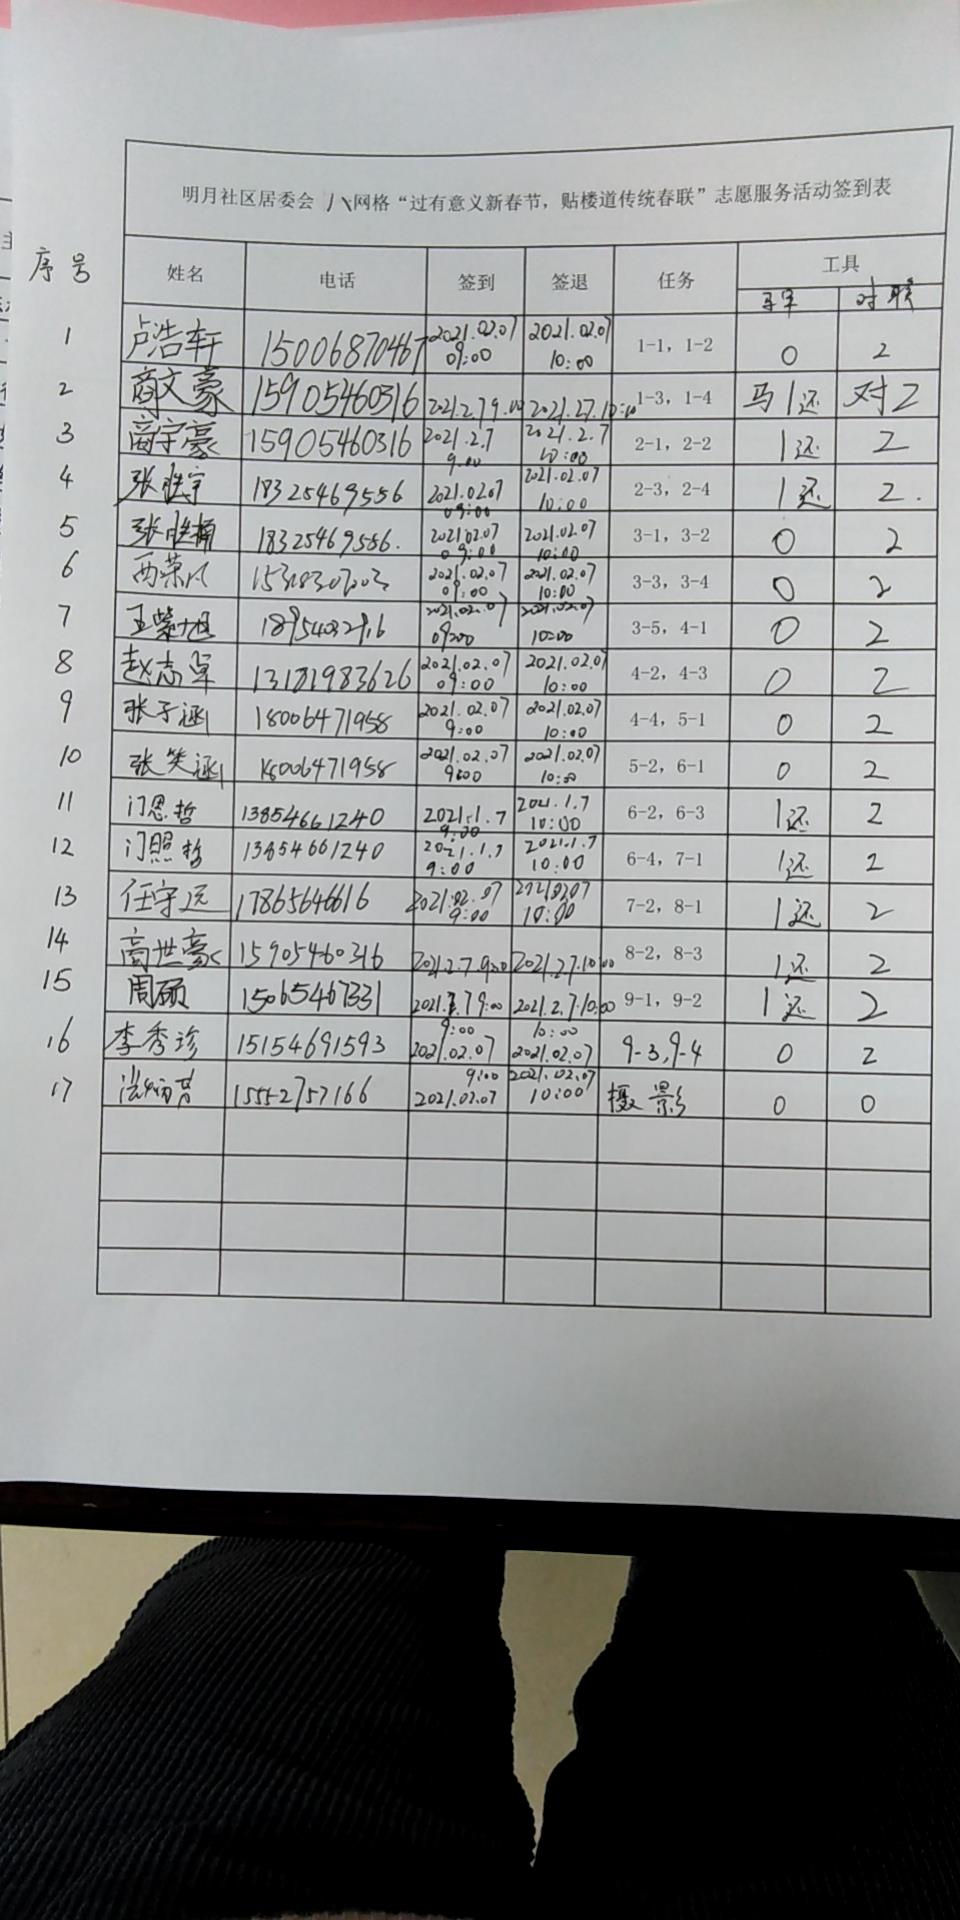 明月社区居委会 八网格“过有意义新春节，贴楼道传统春联”志愿服务活动签到表
序号 姓名 电话 签到 签退 任务 工具
对联
1 卢浩轩 15006870467 2021.02.07 09:00 2021.02.07 10:00 1-1，1-2 0 2
2 商文豪 15905460316 2021.2.7 9.00 2021.2.7.10:00 1-3，1-4 马1还 对2
3 商宇豪 15905460316 2021.2.7 9.00 2021.2.7 10:00 2-1，2-2 1还 2
4 张胜宇 18325469556 2021.02.07 09:00 2021.02.07 10:00 2-3，2-4 1还 2.
5 张胜楠 18325469556. 2021.02.07 09:00 2021.02.07 10:00 3-1，3-2 0 2
6 2021.02.07 09:00 2021.02.07 10:00 3-3，3-4 0 2
7 王紫旭 2021.02.07 09:00 2021.02.07 10:00 3-5，4-1 0 2
8 赵志卓 13181983626 2021.02.07 09:00 2021.02.07 10:00 4-2，4-3 0 2
9 张子涵 18006471958 2021.02.07 9:00 2021.02.07 10:00 4-4，5-1 0 2
10 张笑涵 18006471958 2021.02.07 9:00 2021.02.07 10:00 5-2，6-1 0 2
11 门恩哲 13854661240 2021.1.7 9:00 2021.1.7 10:00 6-2，6-3 1还 2
12 门照哲 13854661240 2021.1.7 9:00 2021.1.7 10:00 6-4，7-1 1还 2
13 任守远 17865646616 2021.02.07 9:00 2021.02.07 10:00 7-2，8-1 1还 2
14 商世豪 15905460316 2021.2.7.9:00 2021.2.7.10:00 8-2，8-3 1还 2
15 周硕 15065467331 2021.2.7 9:00 2021.2.7.10:00 9-1，9-2 1还 2
16 李秀珍 15154691593 9:00 2021.02.07 10:00 2021.02.07 9-3,9-4 0 2
17 15552757166 9:00 2021.02.07 2021.02.07 10:00 摄影 0 0